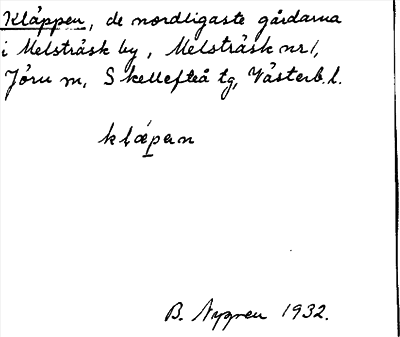 Kläppen, de nordligaste gårdarna
i Melsträsk by, Melsträsk nr 1,
Jörn sn, Skellefteå tg, Västerb. l.
klæ̀pan
B. Nygren 1932.